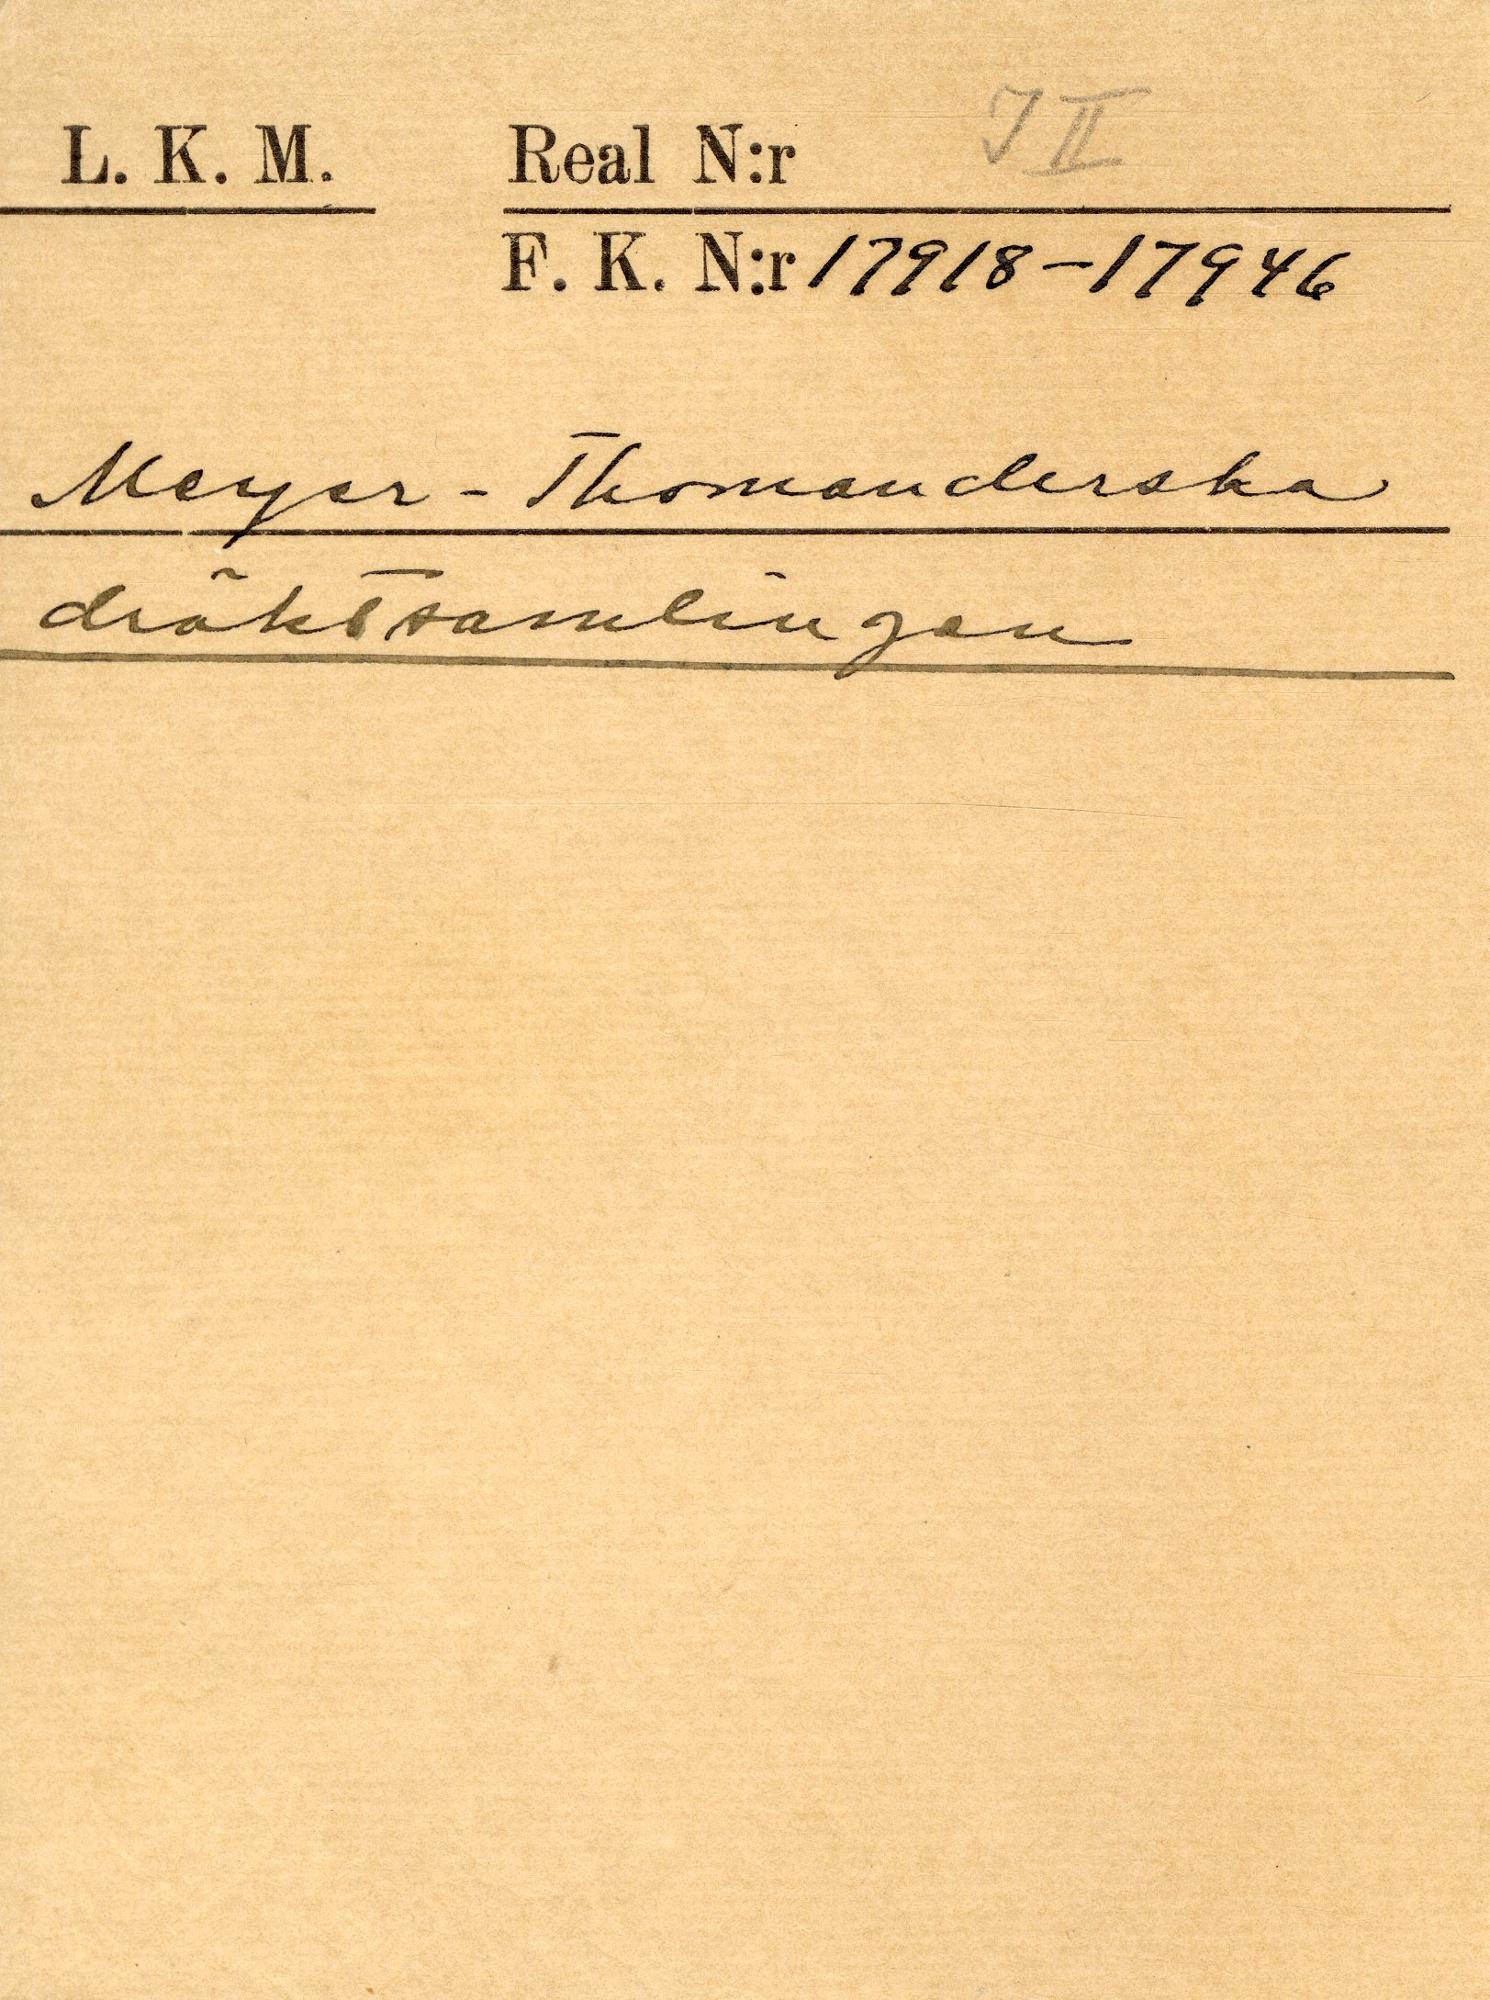 L. K. M. Real N:r I II
F. K. N:r 17918-17946
Meyer - Thomanderska
dräktsamlingen